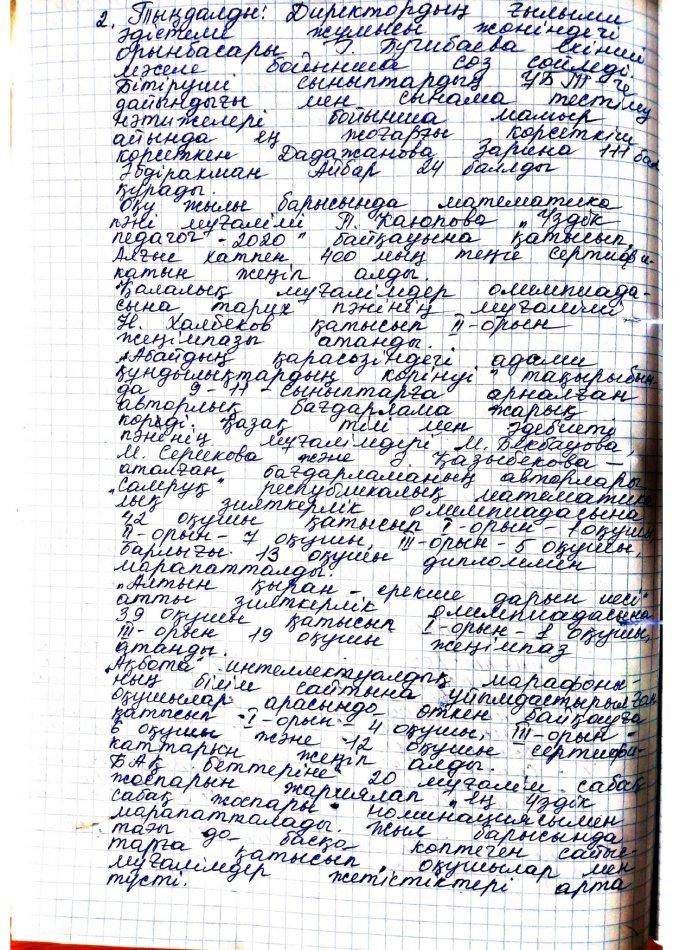 2. Тыңдалды: Директордың ғылыми
әдістеме жұмысы жөніндегі
орынбасары Г. екінші
мәселе бойынша сөз сөйледі.
Бітіруші сыныптардың ҰБТ-ге
дайындығы мен сынама тестілеу
нәтижелері бойынша мамыр
айында ең жоғарғы көрсеткіш
көрсеткен Дадажанова Зарина 111 бал
Әбдірахман Айбар 24 баллды
құрады.
Оқу жылы барысында математика
пәні мұғалімі П. Каюпова "Үздік
педагог - 2020" байқауына қатысып,
Алғыс хатпен 400 мың теңге сертифи-
катын жеңіп алды.
Қалалық мұғалімдер олимпиада-
сына тарих пәнінің мұғалімі
Н. Халбеков қатысып II-орын
жеңімпазы атанды.
"Абайдың қарасөзіндегі адами
құндылықтардың көрінуі" тақырыбын-
да 9-11 сыныптарға арналған
авторлық бағдарлама жарық
көрді. Қазақ тілі мен әдебиеті
пәнінің мұғалімдері М. Бекбауова,
М. Серикова және Қазыбекова -
аталған бағдарламаның авторлары
"Самұрұқ" республикалық математика-
лық зияткерлік олимпиадасына
42 оқушы қатысып I-орын - 1 оқушы,
II-орын - 7 оқушы, III-орын - 5 оқушы,
барлығы 13 оқушы дипломмен
марапатталды.
"Алтын қыран - ерекше дарын иесі"
атты зияткерлік олимпиадасына
39 оқушы қатысып I-орын - 1 оқушы,
III-орын 19 оқушы жеңімпаз
атанды.
"Ақбота" интеллектуалдық марафоны-
ның білім сайтына ұйымдастырылған
оқушылар арасында өткен байқауға
қатысып I-орын - 4 оқушы, III-орын -
6 оқушы және 12 оқушы сертифи-
каттарын жеңіп алды.
БАҚ беттеріне 20 мұғалім сабақ
жоспарын жариялап "Ең үздік
сабақ жоспары" номинациясымен
марапатталады. Жыл барысында
тағы да басқа көптеген сайыс-
тарға қатысып, оқушылар мен
мұғалімдер жетістіктері арта
түсті.